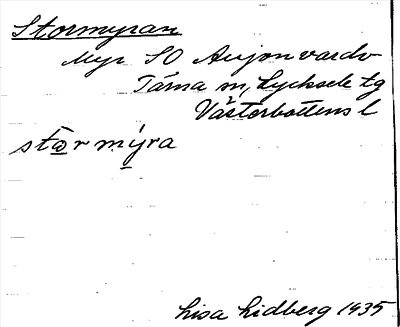 Stormyran
Myr SO Aujonvardo
Tärna sn, Lycksele tg
Västerbottens l
stor mýra
Lisa Lidberg 1935